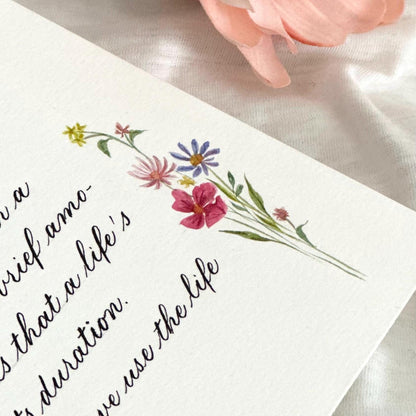 a
brief amo-
that a life's
duration.
use the life